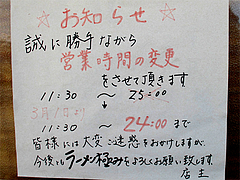 ☆お知らせ☆
誠に勝手ながら
営業時間の変更
をさせて頂きます
11:30 〜 25:00
3月1日より ↓
11:30 〜 24:00まで
皆様には大変ご迷惑をおかけしますが、
今後もラーメン極みをよろしくお願い致します。
店主